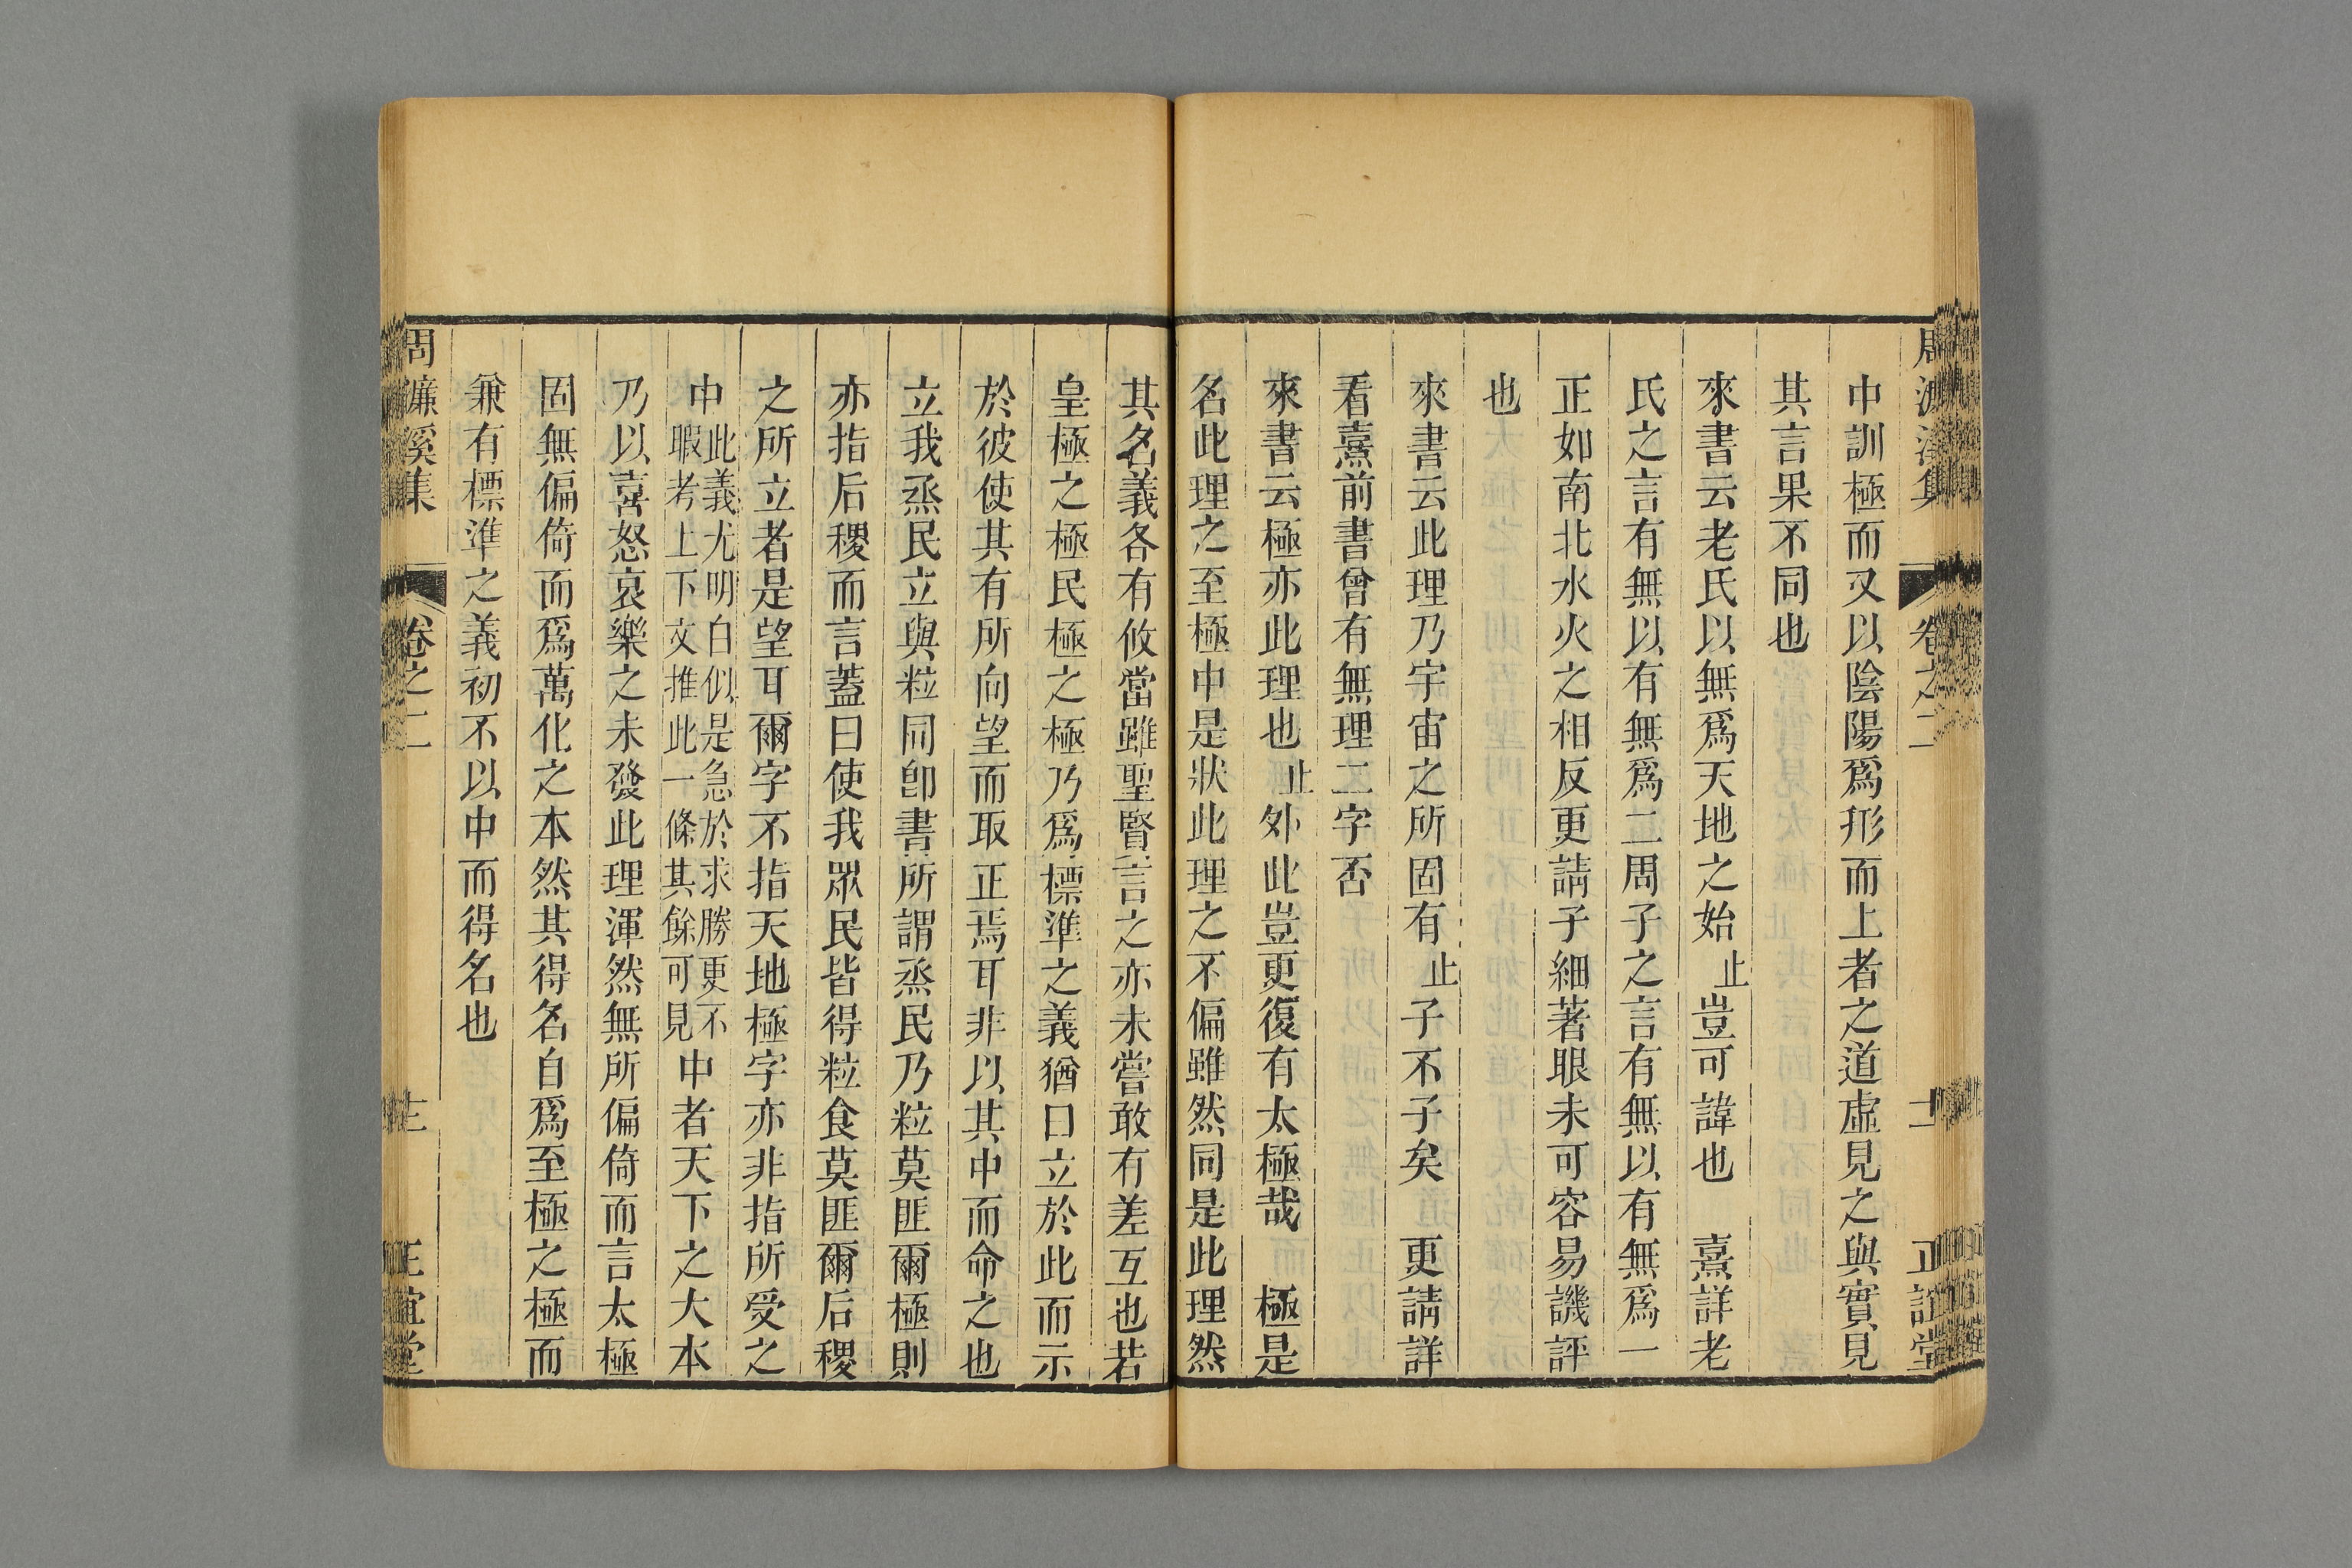 中訓極而又以陰陽爲形而上者之道虛見之與實見
其言果不同也
來書云老氏以無爲天地之始止豈可諱也　熹詳老
氏之言有無以有無爲二周子之言有無以有無爲一
正如南北水火之相反更請子細著眼未可容易譏評
也
來書云此理乃宇宙之所固有止子不子矣　更請詳
看熹前書曾有無理二字否
來書云極亦此理也止外此豈更復有太極哉　極是
名此理之至極中是狀此理之不偏雖然同是此理然
其名義各有攸當雖聖賢言之亦未嘗敢有差互也若
皇極之極民極之極乃爲標準之義猶曰立於此而示
於彼使其有所向望而取正焉耳非以其中而命之也
立我烝民立與粒同卽書所謂烝民乃粒莫匪爾極則
亦指后稷而言蓋曰使我眾民皆得粒食莫匪爾后稷
之所立者是望耳爾字不指天地極字亦非指所受之
中此義尤明白似是急於求勝更不
暇考上下文推此一條其餘可見中者天下之大本
乃以喜怒哀樂之未發此理渾然無所偏倚而言太極
固無偏倚而爲萬化之本然其得名自爲至極之極而
兼有標準之義初不以中而得名也
周濂溪集　卷之二　　正誼堂